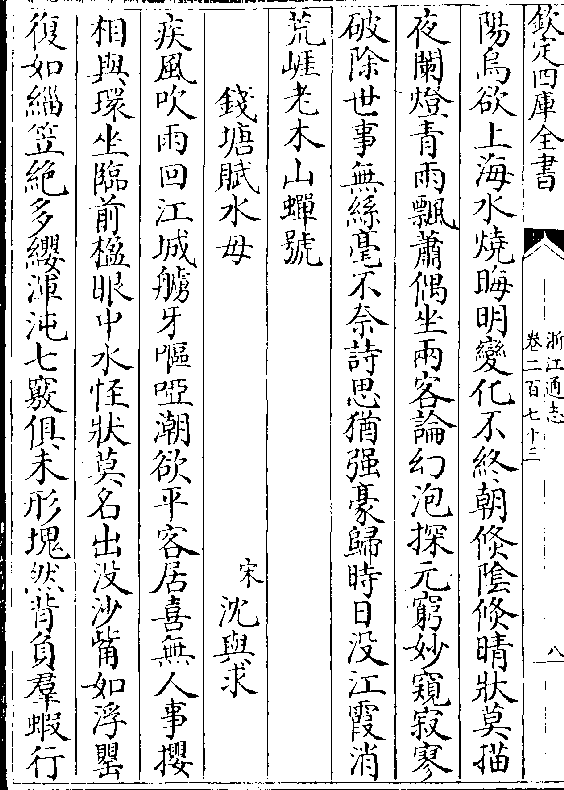 欽定四庫全書
浙江通志
卷二百七十三
八
陽烏欲上海水燒晦明變化不終朝倐陰倐晴狀莫描
夜闌燈青雨飄蕭偶坐兩客論幻泡探元窮妙窺寂寥
破除世事無絲毫不奈詩思猶强豪歸時日没江霞消
荒崕老木山蟬號
錢塘賦水母
宋沈與求
疾風吹雨回江城艣牙嘔啞潮欲平客居喜無人事攖
相與環坐臨前楹眼中水怪狀莫名出没沙觜如浮罌
復如緇笠絶多纓渾沌七竅俱未形塊然背負羣蝦行